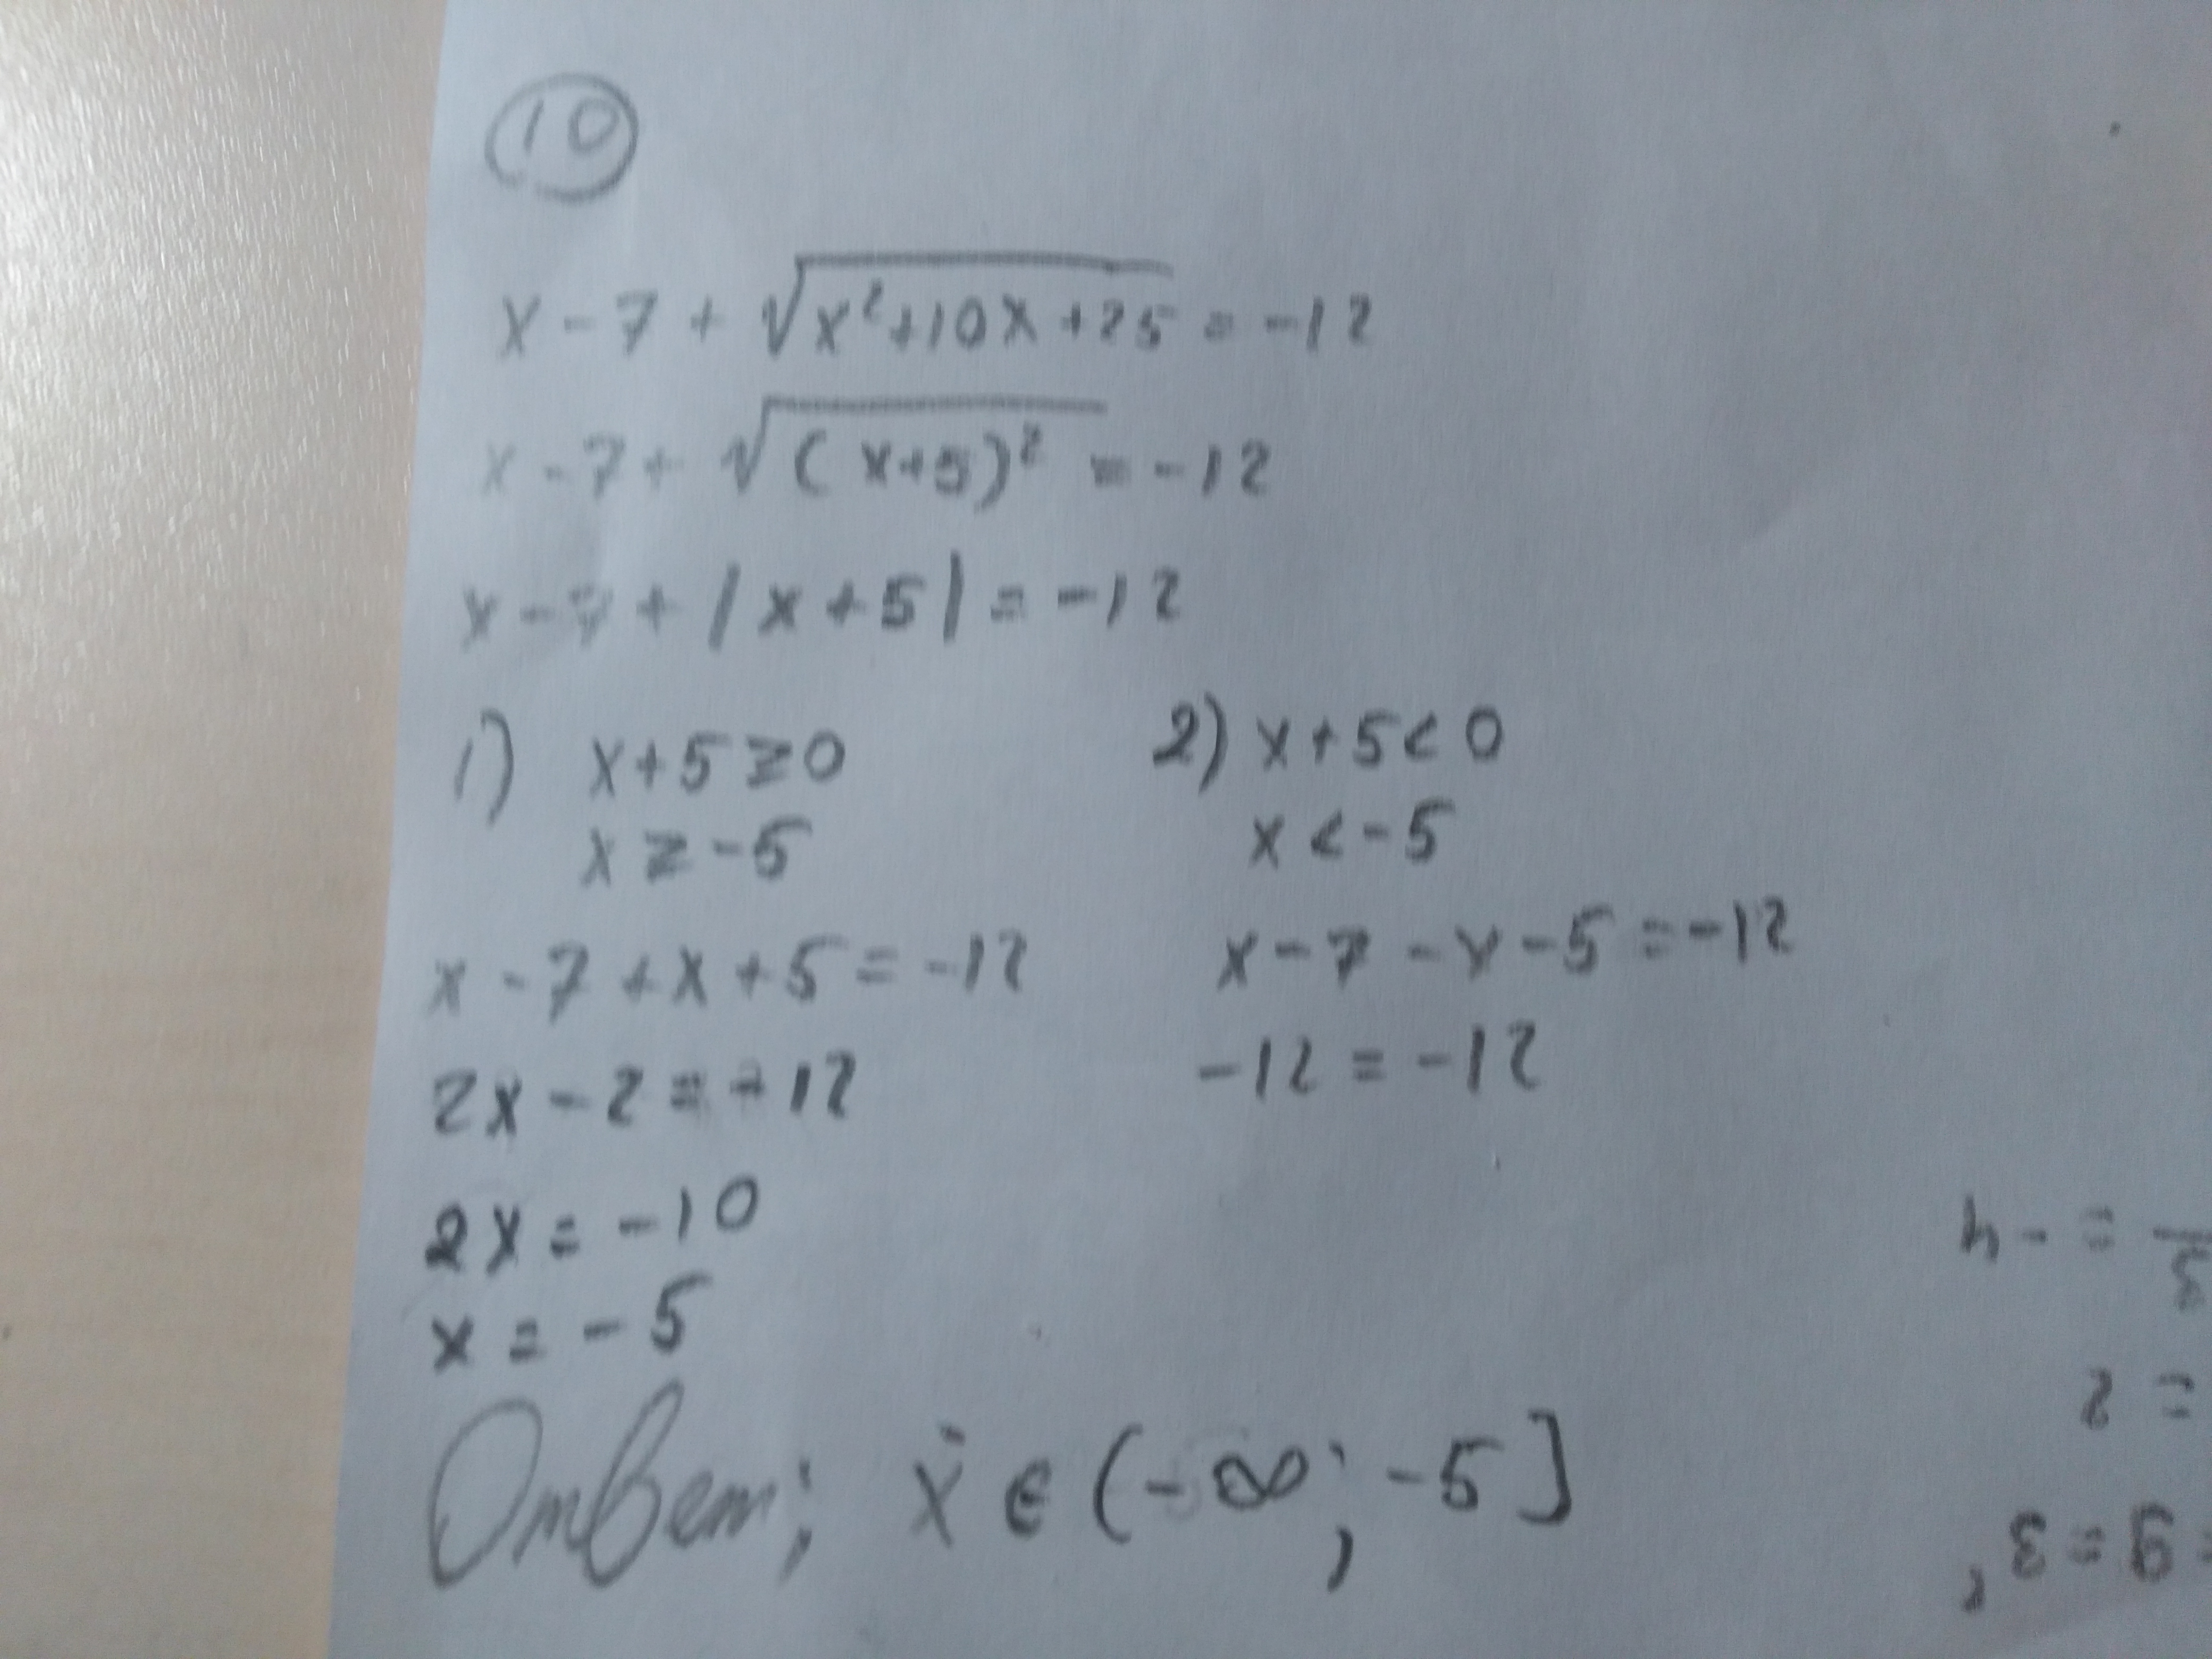 10
x - 7 + √(x²+10x+25) = -12
x - 7 + √((x+5)²) = -12
x - 7 + |x+5| = -12
1) x+5≥0
x ≥ -5
x - 7 + x + 5 = -12
2x - 2 = -12
2x = -10
x = -5
2) x+5<0
x < -5
x - 7 - x - 5 = -12
-12 = -12
Ответ; x ∈ (-∞; -5]
= -4
= 2
9 = 3,